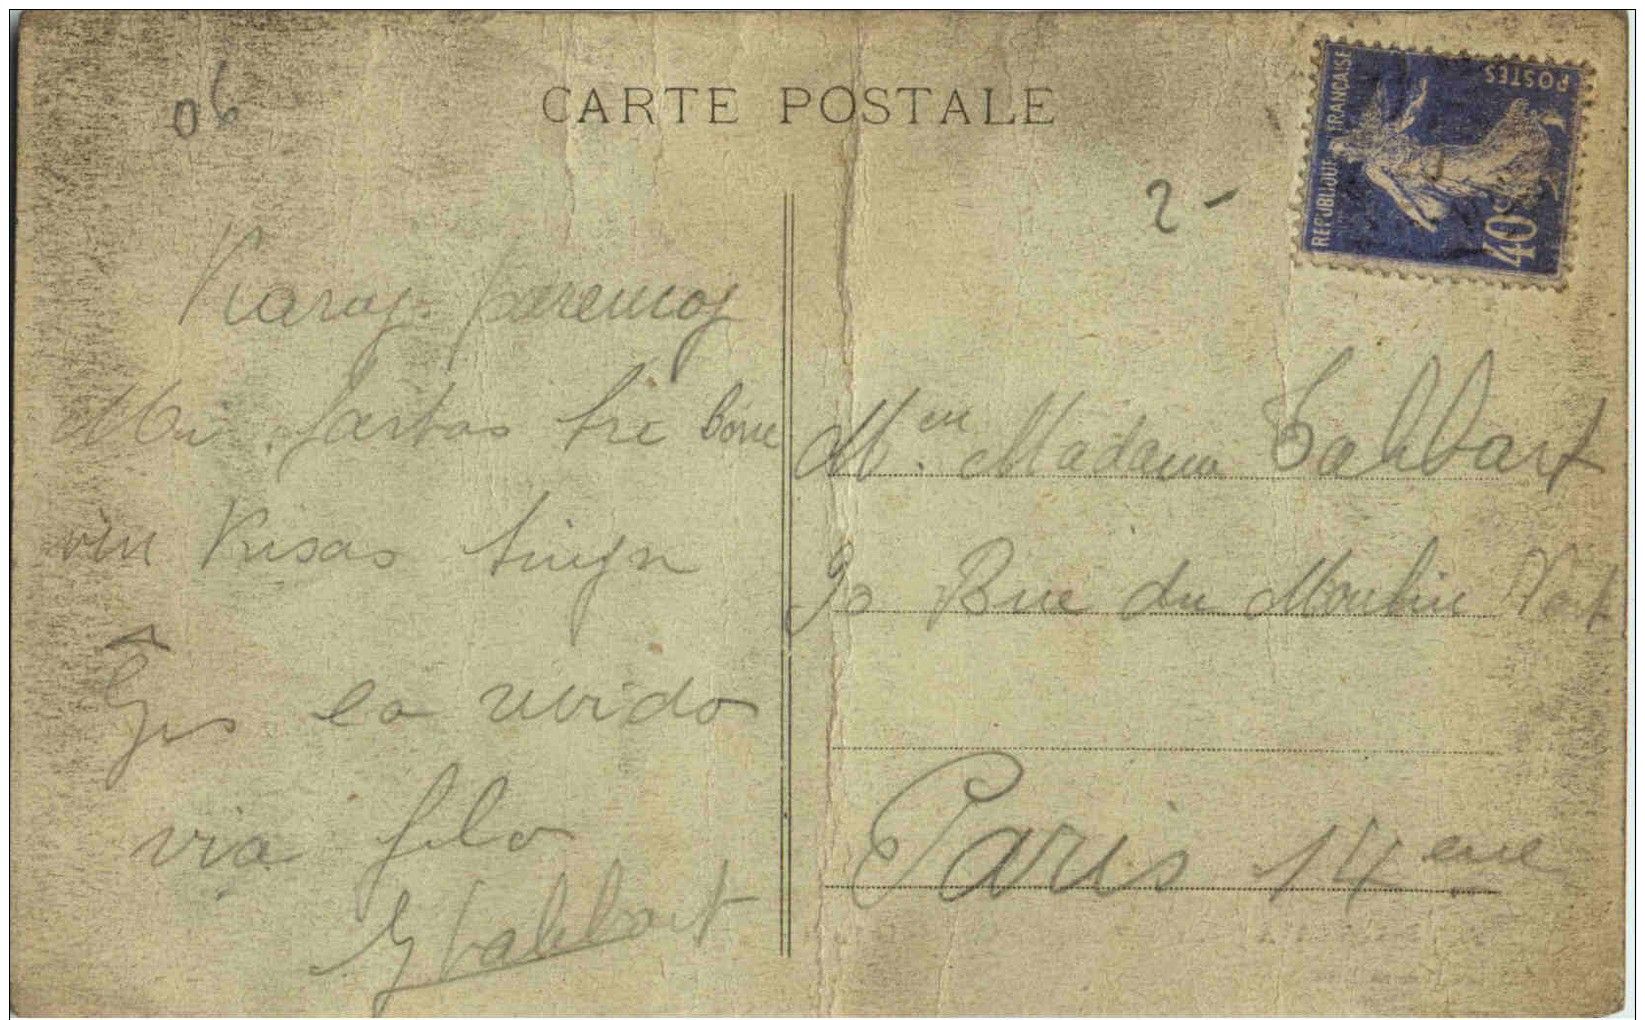 06
CARTE POSTALE
REPUBLIQUE FRANÇAISE
POSTES
40c
2-
Karaj parencoj
Mi fartas tre bone
vin kisas
Ĝis la revido
via filo
M. en Madame
90 Rue du Moulin Vert
Paris 14 eme